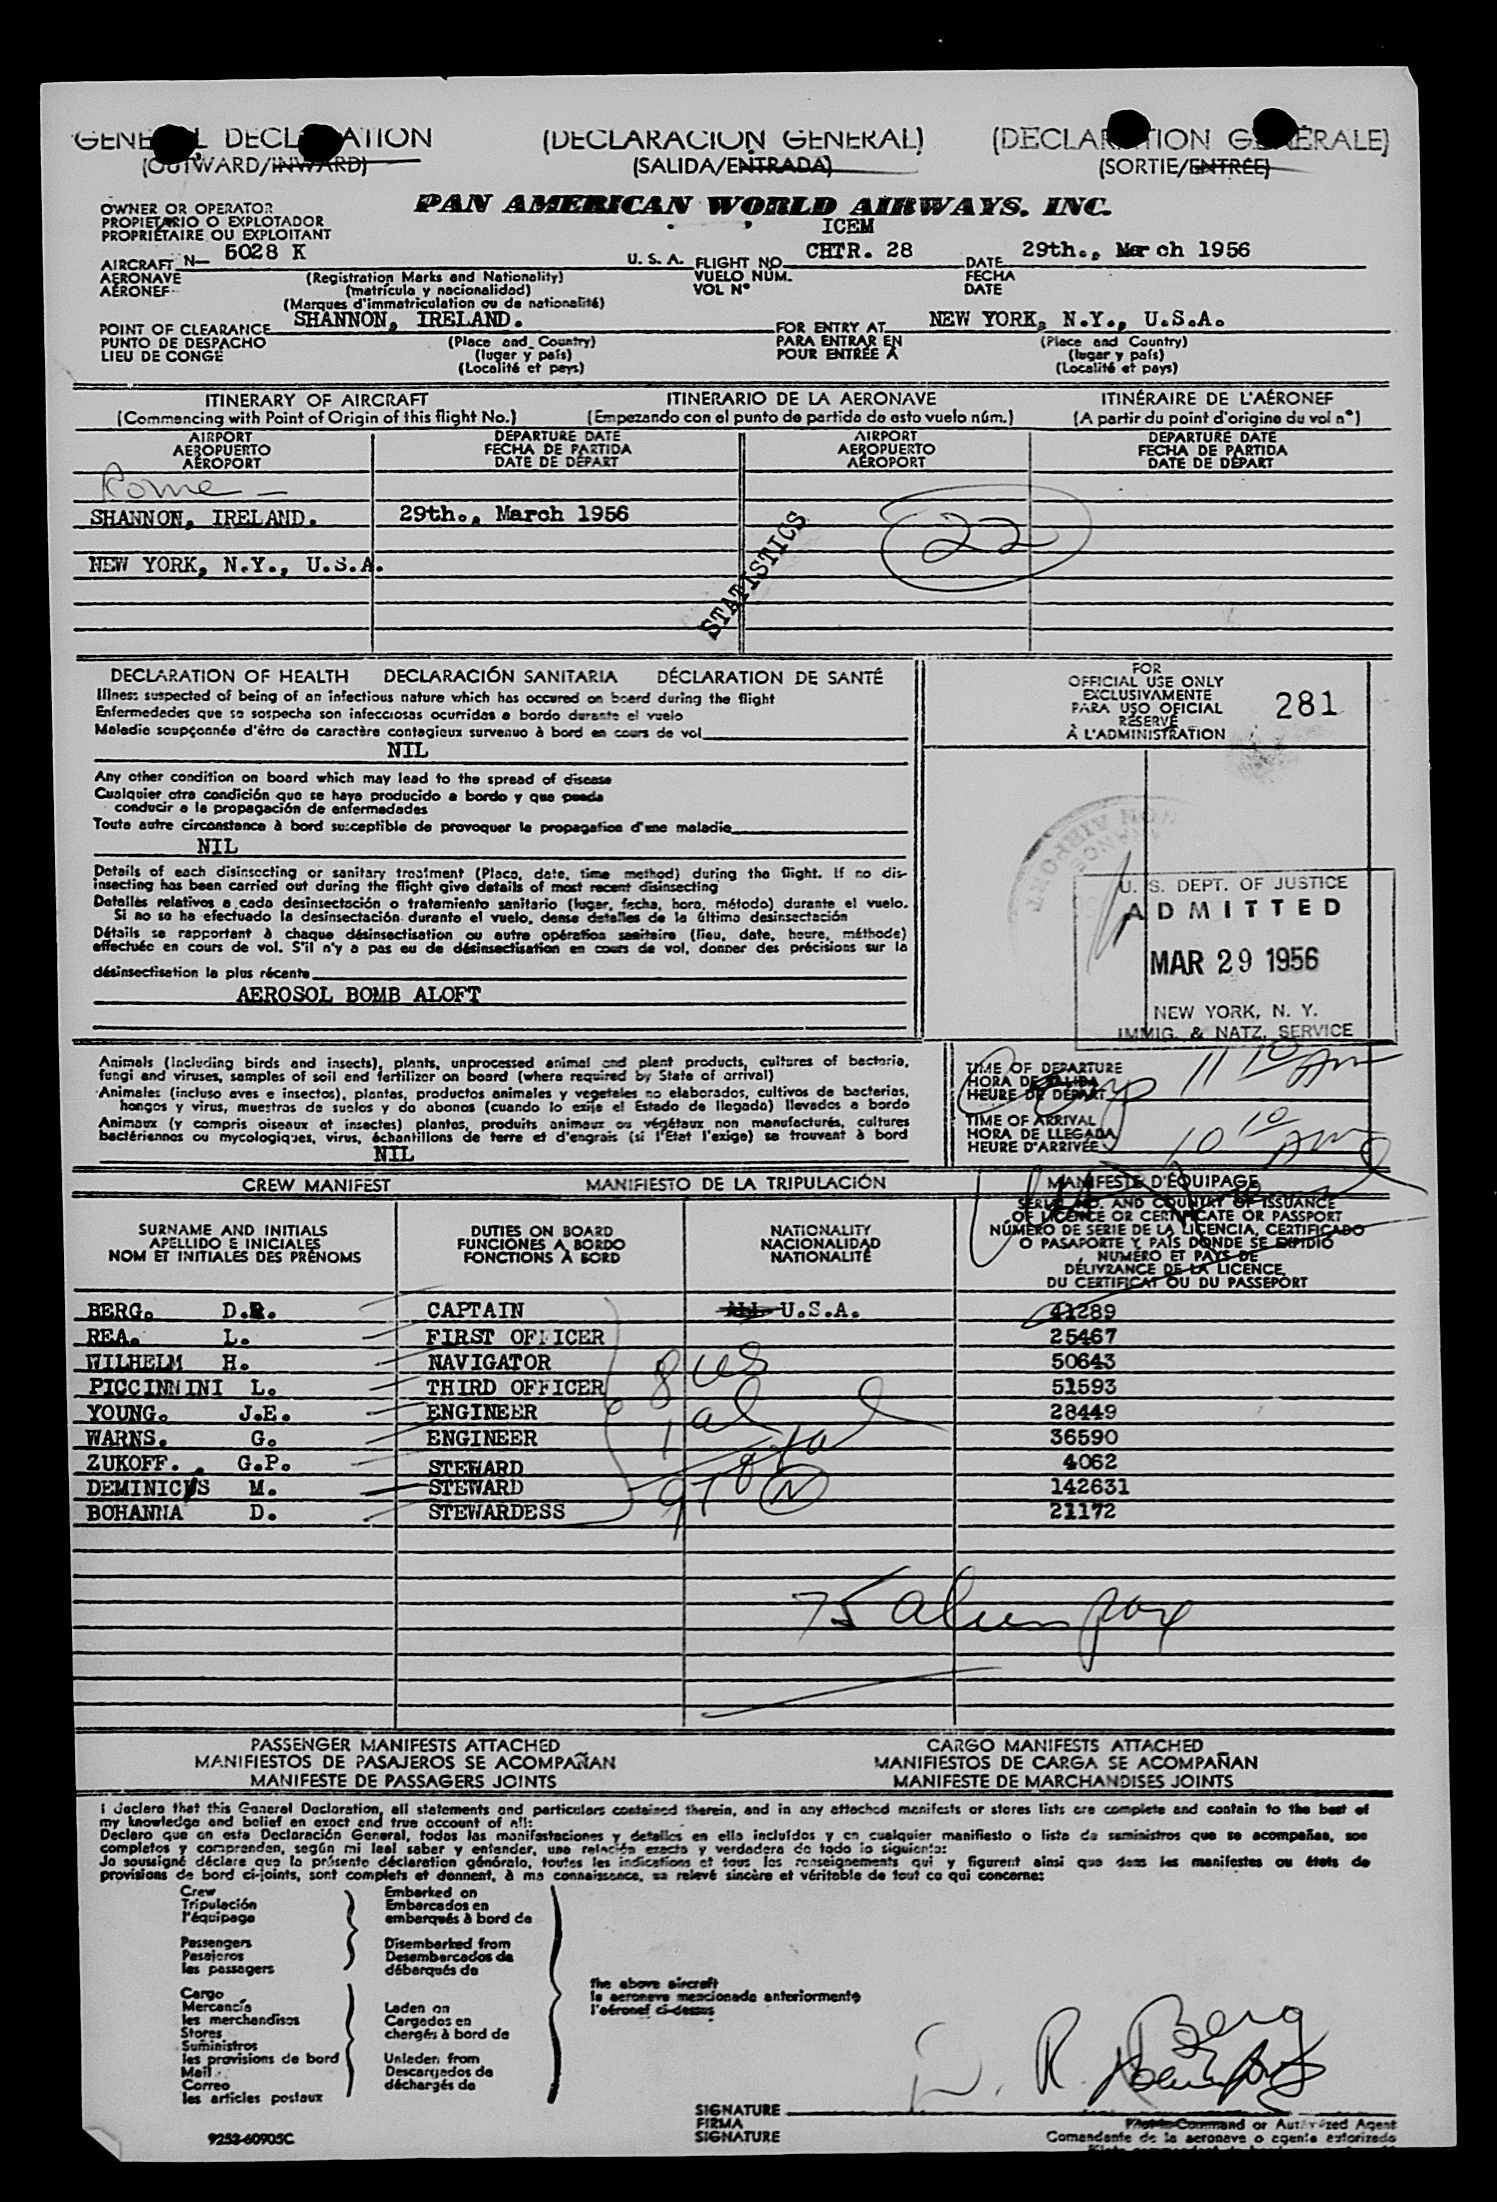 GENERAL DECLARATION (DECLARACION GENERAL) (DECLARATION GÉNÉRALE)
(OUTWARD/INWARD) (SALIDA/ENTRADA) (SORTIE/ENTRÉE)
OWNER OR OPERATOR PAN AMERICAN WORLD AIRWAYS, INC.
PROPIETARIO O EXPLOTADOR ICEM
PROPRIÉTAIRE OU EXPLOITANT
AIRCRAFT N— 5028 K U. S. A. FLIGHT NO. CHTR. 28 DATE 29th., March 1956
AERONAVE (Registration Marks and Nationality) VUELO NÚM. FECHA
AÉRONEF (matrícula y nacionalidad) VOL Nº DATE
(Marques d'immatriculation ou de nationalité)
POINT OF CLEARANCE SHANNON, IRELAND. FOR ENTRY AT NEW YORK, N.Y., U.S.A.
PUNTO DE DESPACHO (Place and Country) PARA ENTRAR EN (Place and Country)
LIEU DE CONGÉ (lugar y país) POUR ENTRÉE À (lugar y país)
(Localité et pays) (Localité et pays)
ITINERARY OF AIRCRAFT ITINERARIO DE LA AERONAVE ITINÉRAIRE DE L'AÉRONEF
(Commencing with Point of Origin of this flight No.) (Empezando con el punto de partida de esto vuelo núm.) (A partir du point d'origine du vol nº)
AIRPORT DEPARTURE DATE AIRPORT DEPARTURE DATE
AEROPUERTO FECHA DE PARTIDA AEROPUERTO FECHA DE PARTIDA
AÉROPORT DATE DE DÉPART AÉROPORT DATE DE DÉPART
Rome —
SHANNON, IRELAND. 29th., March 1956
22
NEW YORK, N.Y., U.S.A.
STATISTICS
DECLARATION OF HEALTH DECLARACIÓN SANITARIA DÉCLARATION DE SANTÉ
Illness suspected of being of an infectious nature which has occured on board during the flight
Enfermedades que se sospecha son infecciosas ocurridas a bordo durante el vuelo
Maladie soupçonnée d'être de caractère contagieux survenue à bord en cours de vol
NIL
Any other condition on board which may lead to the spread of disease
Cualquier otra condición que se haya producido a bordo y que pueda
conducir a la propagación de enfermedades
Toute autre circonstance à bord susceptible de provoquer la propagation d'une maladie
NIL
Details of each disinsecting or sanitary treatment (Place, date, time method) during the flight. If no dis-
insecting has been carried out during the flight give details of most recent disinsecting
Detalles relativos a cada desinsectación o tratamiento sanitario (lugar, fecha, hora, método) durante el vuelo.
Si no se ha efectuado la desinsectación durante el vuelo, dense detalles de la última desinsectación
Détails se rapportant à chaque désinsectisation ou autre opération sanitaire (lieu, date, heure, méthode)
effectuée en cours de vol. S'il n'y a pas eu de désinsectisation en cours de vol, donner des précisions sur la
désinsectisation la plus récente
AEROSOL BOMB ALOFT
FOR
OFFICIAL USE ONLY
EXCLUSIVAMENTE
PARA USO OFICIAL
RÉSERVÉ
À L'ADMINISTRATION
281
U. S. DEPT. OF JUSTICE
ADMITTED
MAR 29 1956
NEW YORK, N. Y.
IMMIG. & NATZ. SERVICE
Animals (Including birds and insects), plants, unprocessed animal and plant products, cultures of bacteria,
fungi and viruses, samples of soil and fertilizer on board (where required by State of arrival)
Animales (incluso aves e insectos), plantas, productos animales y vegetales no elaborados, cultivos de bacterias,
hongos y virus, muestras de suelos y de abonos (cuando lo exije el Estado de llegada) llevados a bordo
Animaux (y compris oiseaux et insectes) plantes, produits animaux ou végétaux non manufacturés, cultures
bactériennes ou mycologiques, virus, échantillons de terre et d'engrais (si l'Etat l'exige) se trouvant à bord
NIL
TIME OF DEPARTURE
HORA DE SALIDA
HEURE DE DÉPART
11 10 Am
TIME OF ARRIVAL
HORA DE LLEGADA
HEURE D'ARRIVÉE
10 10 Am
CREW MANIFEST MANIFIESTO DE LA TRIPULACIÓN MANIFESTE D'ÉQUIPAGE
SURNAME AND INITIALS
APELLIDO E INICIALES
NOM ET INITIALES DES PRÉNOMS
DUTIES ON BOARD
FUNCIONES A BORDO
FONCTIONS À BORD
NATIONALITY
NACIONALIDAD
NATIONALITÉ
SERIAL NO. AND COUNTRY OF ISSUANCE
OF LICENCE OR CERTIFICATE OR PASSPORT
NÚMERO DE SERIE DE LA LICENCIA, CERTIFICADO
O PASAPORTE Y PAÍS DONDE SE EXPIDIÓ
NUMÉRO ET PAYS DE
DÉLIVRANCE DE LA LICENCE,
DU CERTIFICAT OU DU PASSEPORT
BERG. D.R. CAPTAIN ALL U.S.A. 41289
REA. L. FIRST OFFICER 25467
WILHELM H. NAVIGATOR 50643
PICCINNINI L. THIRD OFFICER 51593
YOUNG. J.E. ENGINEER 28449
WARNS. G. ENGINEER 36590
ZUKOFF. G.P. STEWARD 4062
DEMINICUS M. STEWARD 142631
BOHANNA D. STEWARDESS 21172
8 us
1 al
75 alien pax
PASSENGER MANIFESTS ATTACHED CARGO MANIFESTS ATTACHED
MANIFIESTOS DE PASAJEROS SE ACOMPAÑAN MANIFIESTOS DE CARGA SE ACOMPAÑAN
MANIFESTE DE PASSAGERS JOINTS MANIFESTE DE MARCHANDISES JOINTS
I declare that this General Declaration, all statements and particulars contained therein, and in any attached manifests or stores lists are complete and contain to the best of
my knowledge and belief an exact and true account of all:
Declaro que en esta Declaración General, todas las manifestaciones y detalles en ella incluídos y en cualquier manifiesto o lista de suministros que se acompañan, son
completos y comprenden, según mi leal saber y entender, una relación exacta y verdadera de todo lo siguiente:
Je soussigné déclare que la présente déclaration générale, toutes les indications et tous les renseignements qui y figurent ainsi que dans les manifestes ou états de
provisions de bord ci-joints, sont complets et donnent, à ma connaissance, un relevé sincère et véritable de tout ce qui concerne:
Crew Embarked on
Tripulación Embarcados en
l'équipage embarqués à bord de
Passengers Disembarked from
Pasajeros Desembarcados de
les passagers débarqués de
the above aircraft
la aeroneve mencionada anteriormente
l'aéronef ci-dessus
Cargo
Mercancía Laden on
les merchandises Cargados en
Stores chargés à bord de
Suministros
les provisions de bord Unladen from
Mail Descargados de
Correo déchargés de
les articles postaux
D. R. Berg
SIGNATURE
FIRMA
SIGNATURE
Pilot in Command or Authorized Agent
Comandante de la aeronave o agente autorizado
9253-60905C